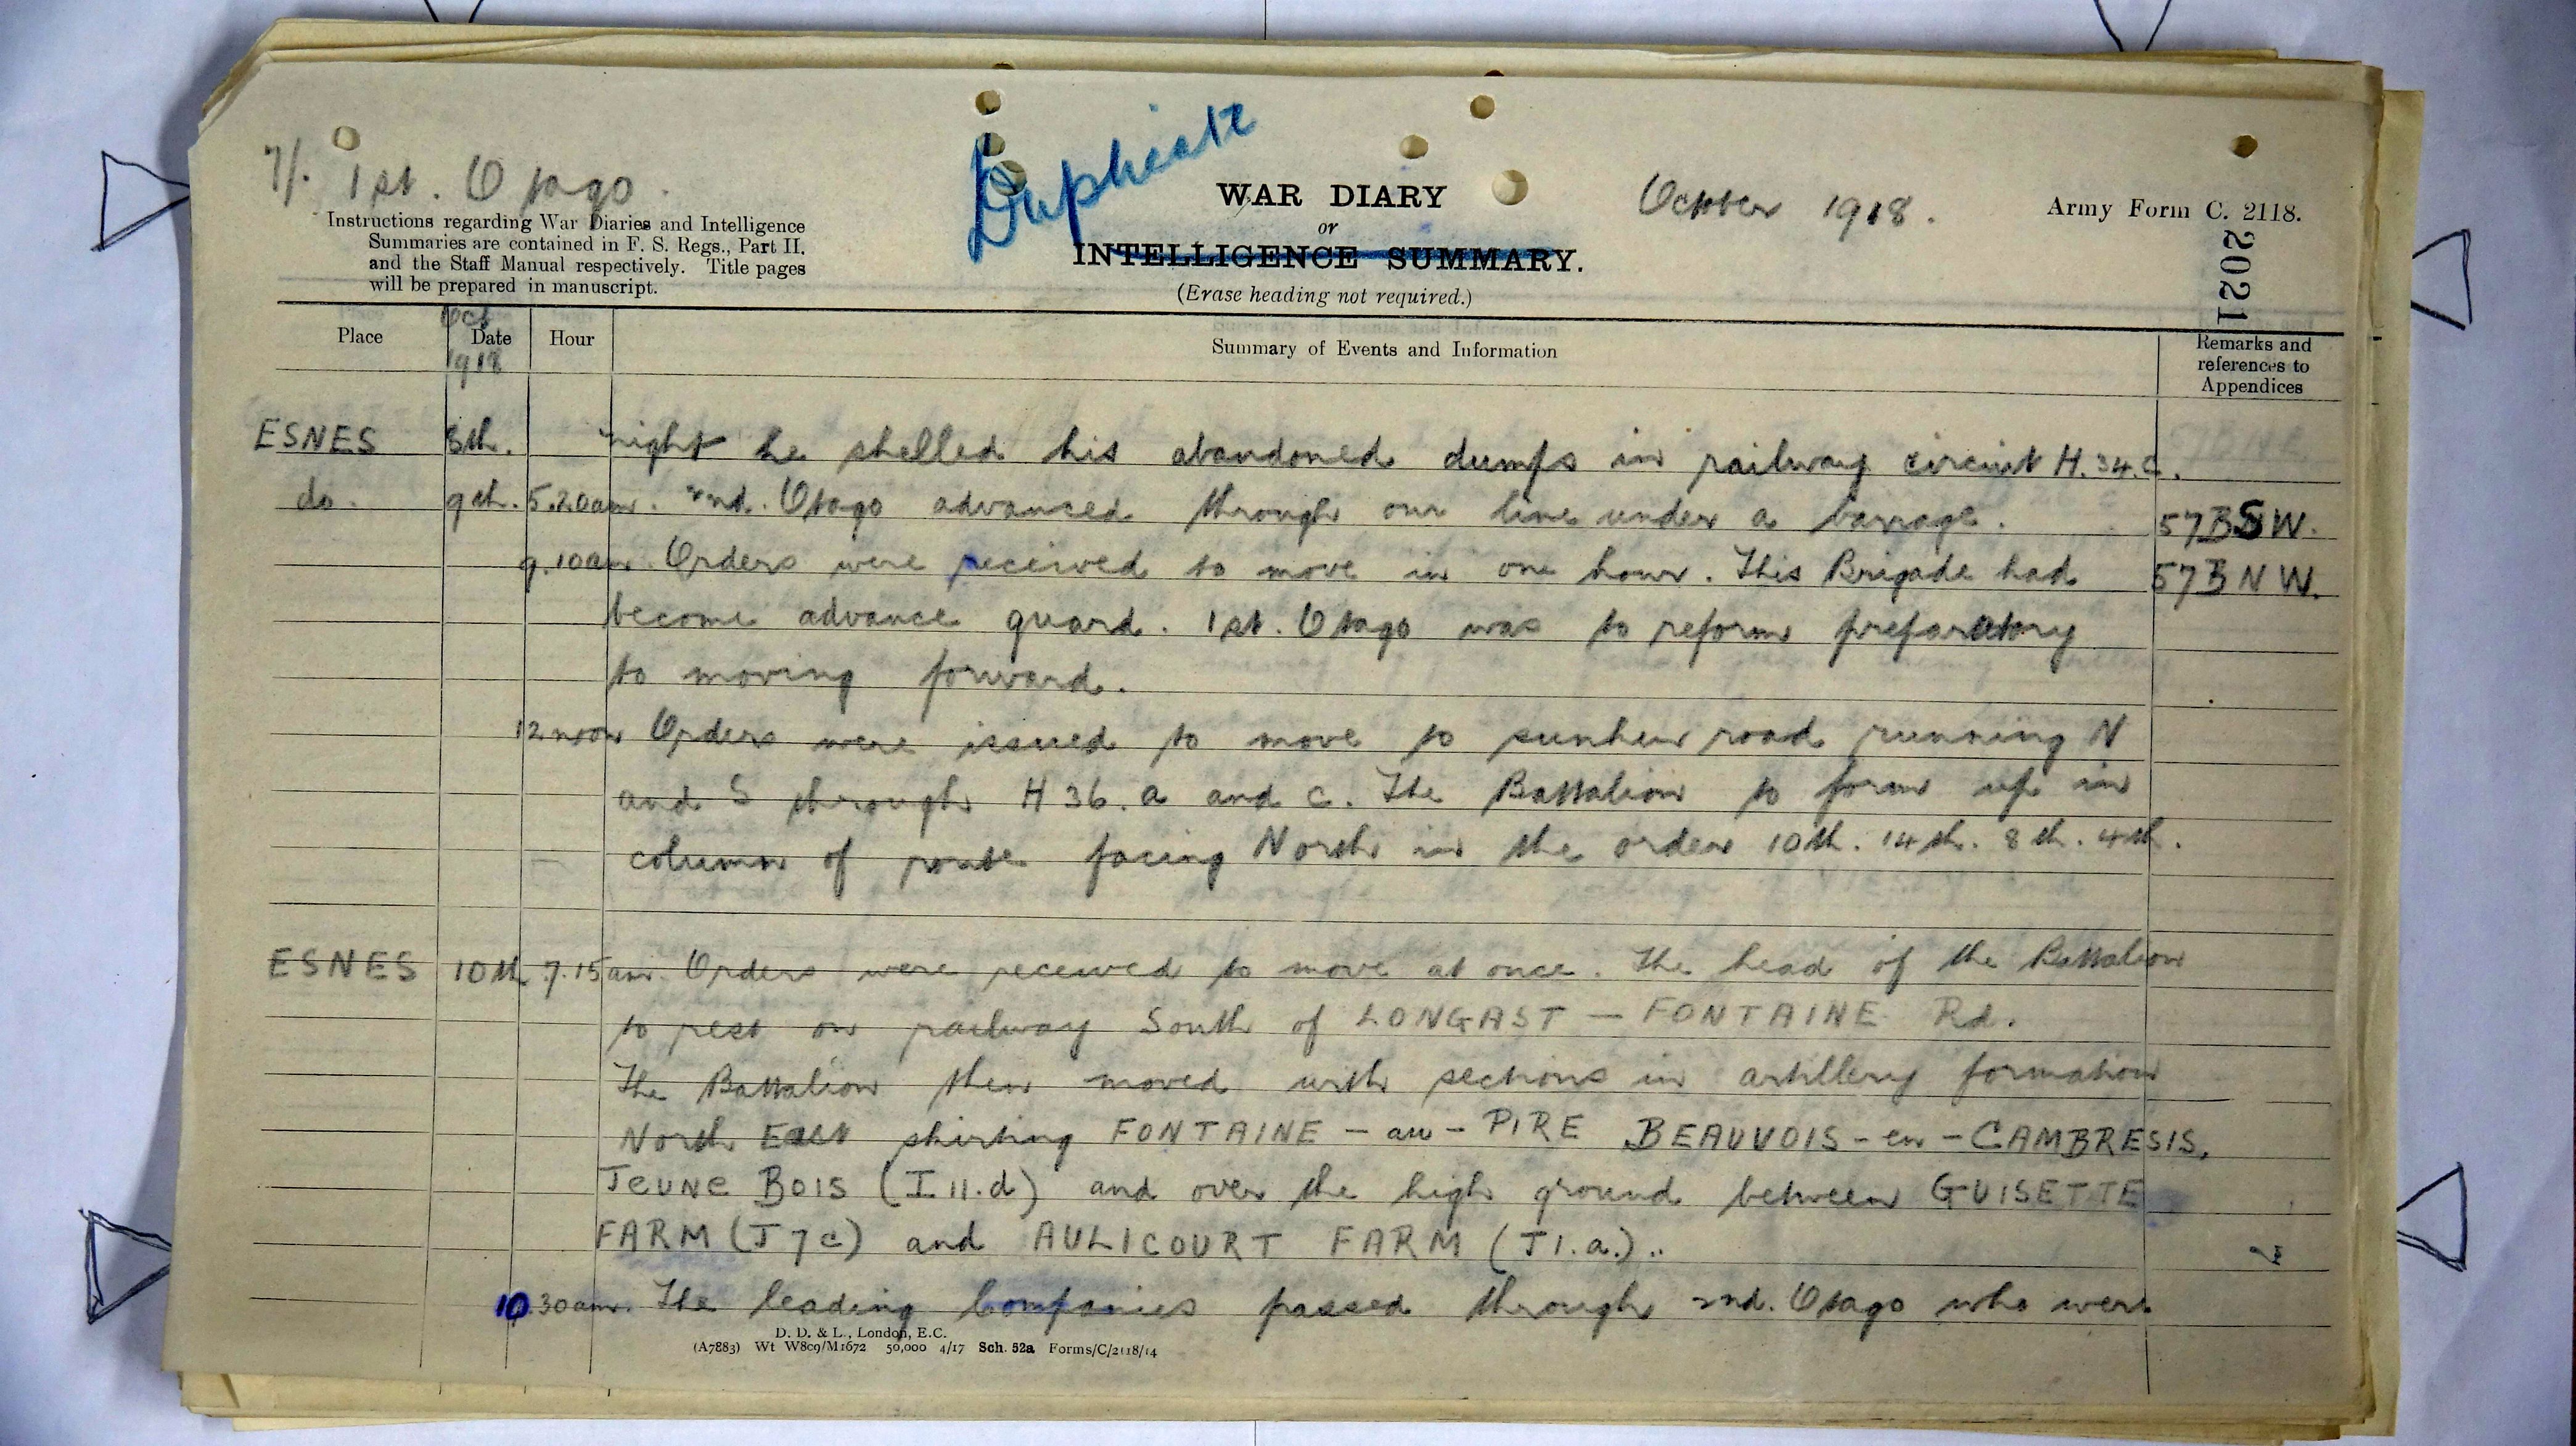 7/. 1st. Otago.
Duplicate
WAR DIARY
or
INTELLIGENCE SUMMARY.
(Erase heading not required.)
October 1918.
Army Form C. 2118.
2021
Instructions regarding War Diaries and Intelligence
Summaries are contained in F. S. Regs., Part II.
and the Staff Manual respectively. Title pages
will be prepared in manuscript.
Place Oct Date 1918 Hour Summary of Events and Information Remarks and references to Appendices
ESNES 8th. night he shelled his abandoned dumps in railway circuit H.34.c.
do. 9th. 5.20am. 2nd. Otago advanced through our line under a barrage. 57BSW.
9.10am. Orders were received to move in one hour. This Brigade had 57B NW.
become advance guard. 1st. Otago was to reform preparatory
to moving forward.
12 noon Orders were issued to move to sunken road running N
and S through H 36. a and c. The Battalion to form up in
column of route facing North in the order 10th. 14th. 8th. 4th.
ESNES 10th 7.15am. Orders were received to move at once. The head of the Battalion
to rest on railway South of LONGAST - FONTAINE Rd.
The Battalion then moved with sections in artillery formation
North East skirting FONTAINE - au - PIRE BEAUVOIS - en - CAMBRESIS,
JEUNE BOIS (I 11.d) and over the high ground between GUISETTE
FARM (J 7 c) and AULICOURT FARM (J 1.a.)..
10.30am. The leading Companies passed through 2nd. Otago who were
D. D. & L., London, E.C.
(A7883) Wt W809/M1672 50,000 4/17 Sch. 52a Forms/C/2118/14